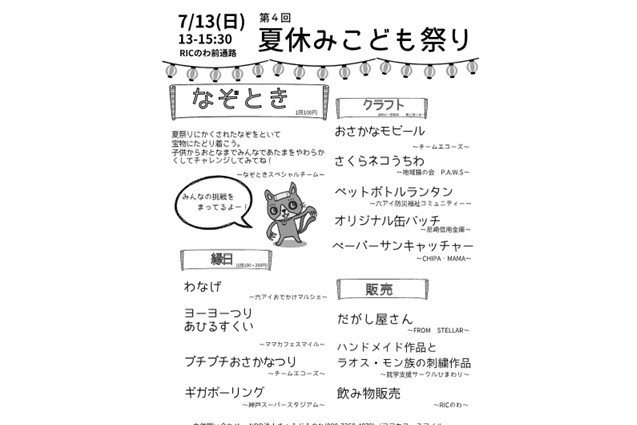 7/13(日)
13-15:30
RICのわ前通路
第4回
夏休みこども祭り
なぞとき
1回100円
夏祭りにかくされたなぞをといて
宝物にたどり着こう。
子供からおとなまでみんなであたまをやわらか
くしてチャレンジしてみてね!
〜なぞときスペシャルチーム〜
みんなの挑戦を
まってるよー!
縁日
わなげ
〜六アイおでかけマルシェ〜
ヨーヨーつり
あひるすくい
〜ママカフェスマイル〜
プチプチおさかなつり
〜チームエコーズ〜
ギガボーリング
〜神戸スーパースタジアム〜
クラフト
おさかなモビール
〜チームエコーズ〜
さくらネコうちわ
〜地域猫の会 P.A.W.S〜
ペットボトルランタン
〜六アイ防災福祉コミュニティー〜
オリジナル缶バッチ
〜尼崎信用金庫〜
ペーパーサンキャッチャー
〜CHIPA・MAMA〜
販売
だがし屋さん
〜FROM STELLAR〜
ハンドメイド作品と
ラオス・モン族の刺繍作品
〜就学支援サークルひまわり〜
飲み物販売
〜RICのわ〜